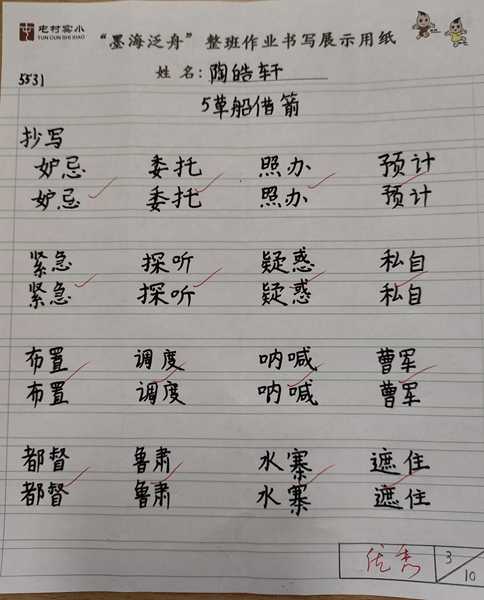 屯村实小
TUN CUN SHI XIAO
“墨海泛舟”整班作业书写展示用纸
姓名：陶皓轩
5531
5草船借箭
抄写
妒忌 委托 照办 预计
妒忌 委托 照办 预计
紧急 探听 疑惑 私自
紧急 探听 疑惑 私自
布置 调度 呐喊 曹军
布置 调度 呐喊 曹军
都督 鲁肃 水寨 遮住
都督 鲁肃 水寨 遮住
优秀 3/10